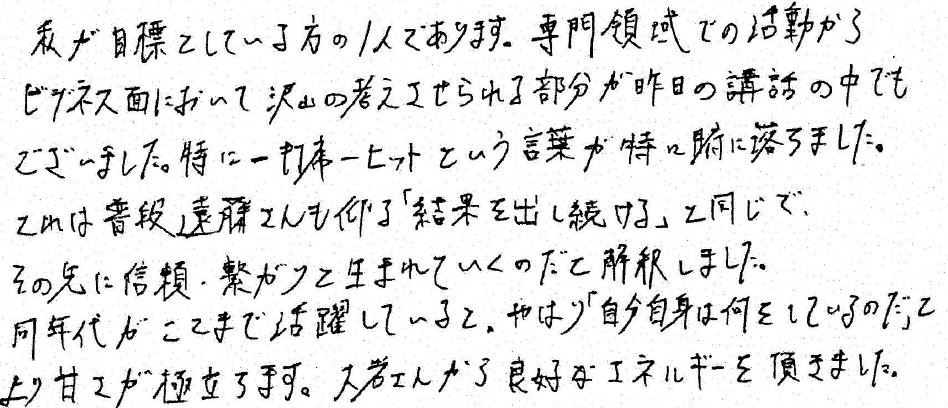 私が目標としている方の1人であります。専門領域での活動から
ビジネス面において沢山の考えさせられる部分が昨日の講話の中でも
ございました。特に一打席一ヒットという言葉が特に腑に落ちました。
これは普段、遠藤さんも仰る「結果を出し続ける」と同じで、
その先に信頼・繋がりと生まれていくのだと解釈しました。
同年代がここまで活躍していると、やはり「自分自身は何をしているのだ」と
より甘さが極立ちます。大岩さんから良好なエネルギーを頂きました。